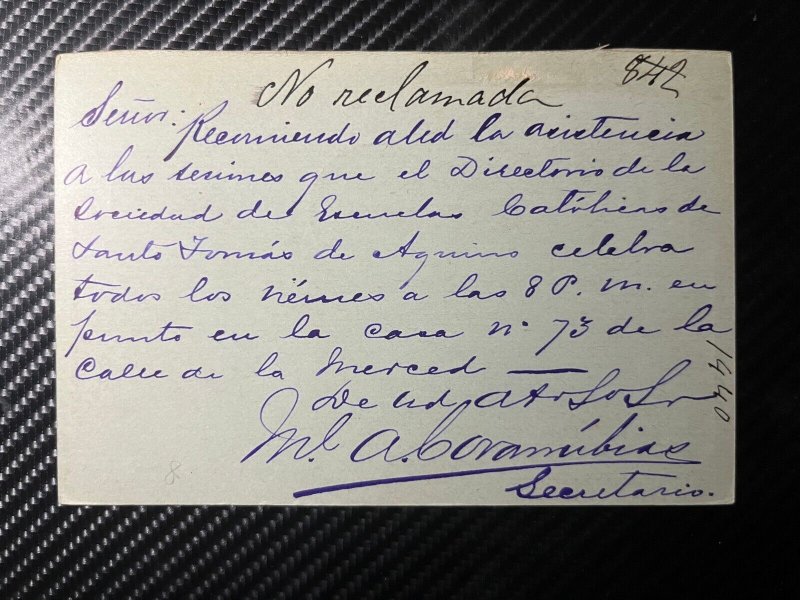 No reclamada
842
Señor:
Recomiendo a Ud la asistencia
a las sesiones que el Directorio de la
Sociedad de Escuelas Católicas de
Santo Tomás de Aquino celebra
todos los viérnes a las 8 P. m. en
punto en la casa nº 73 de la
Calle de la Merced —
De Ud. Ato S. S.
Ml. A. Covarrúbias
Secretario.
1440
8